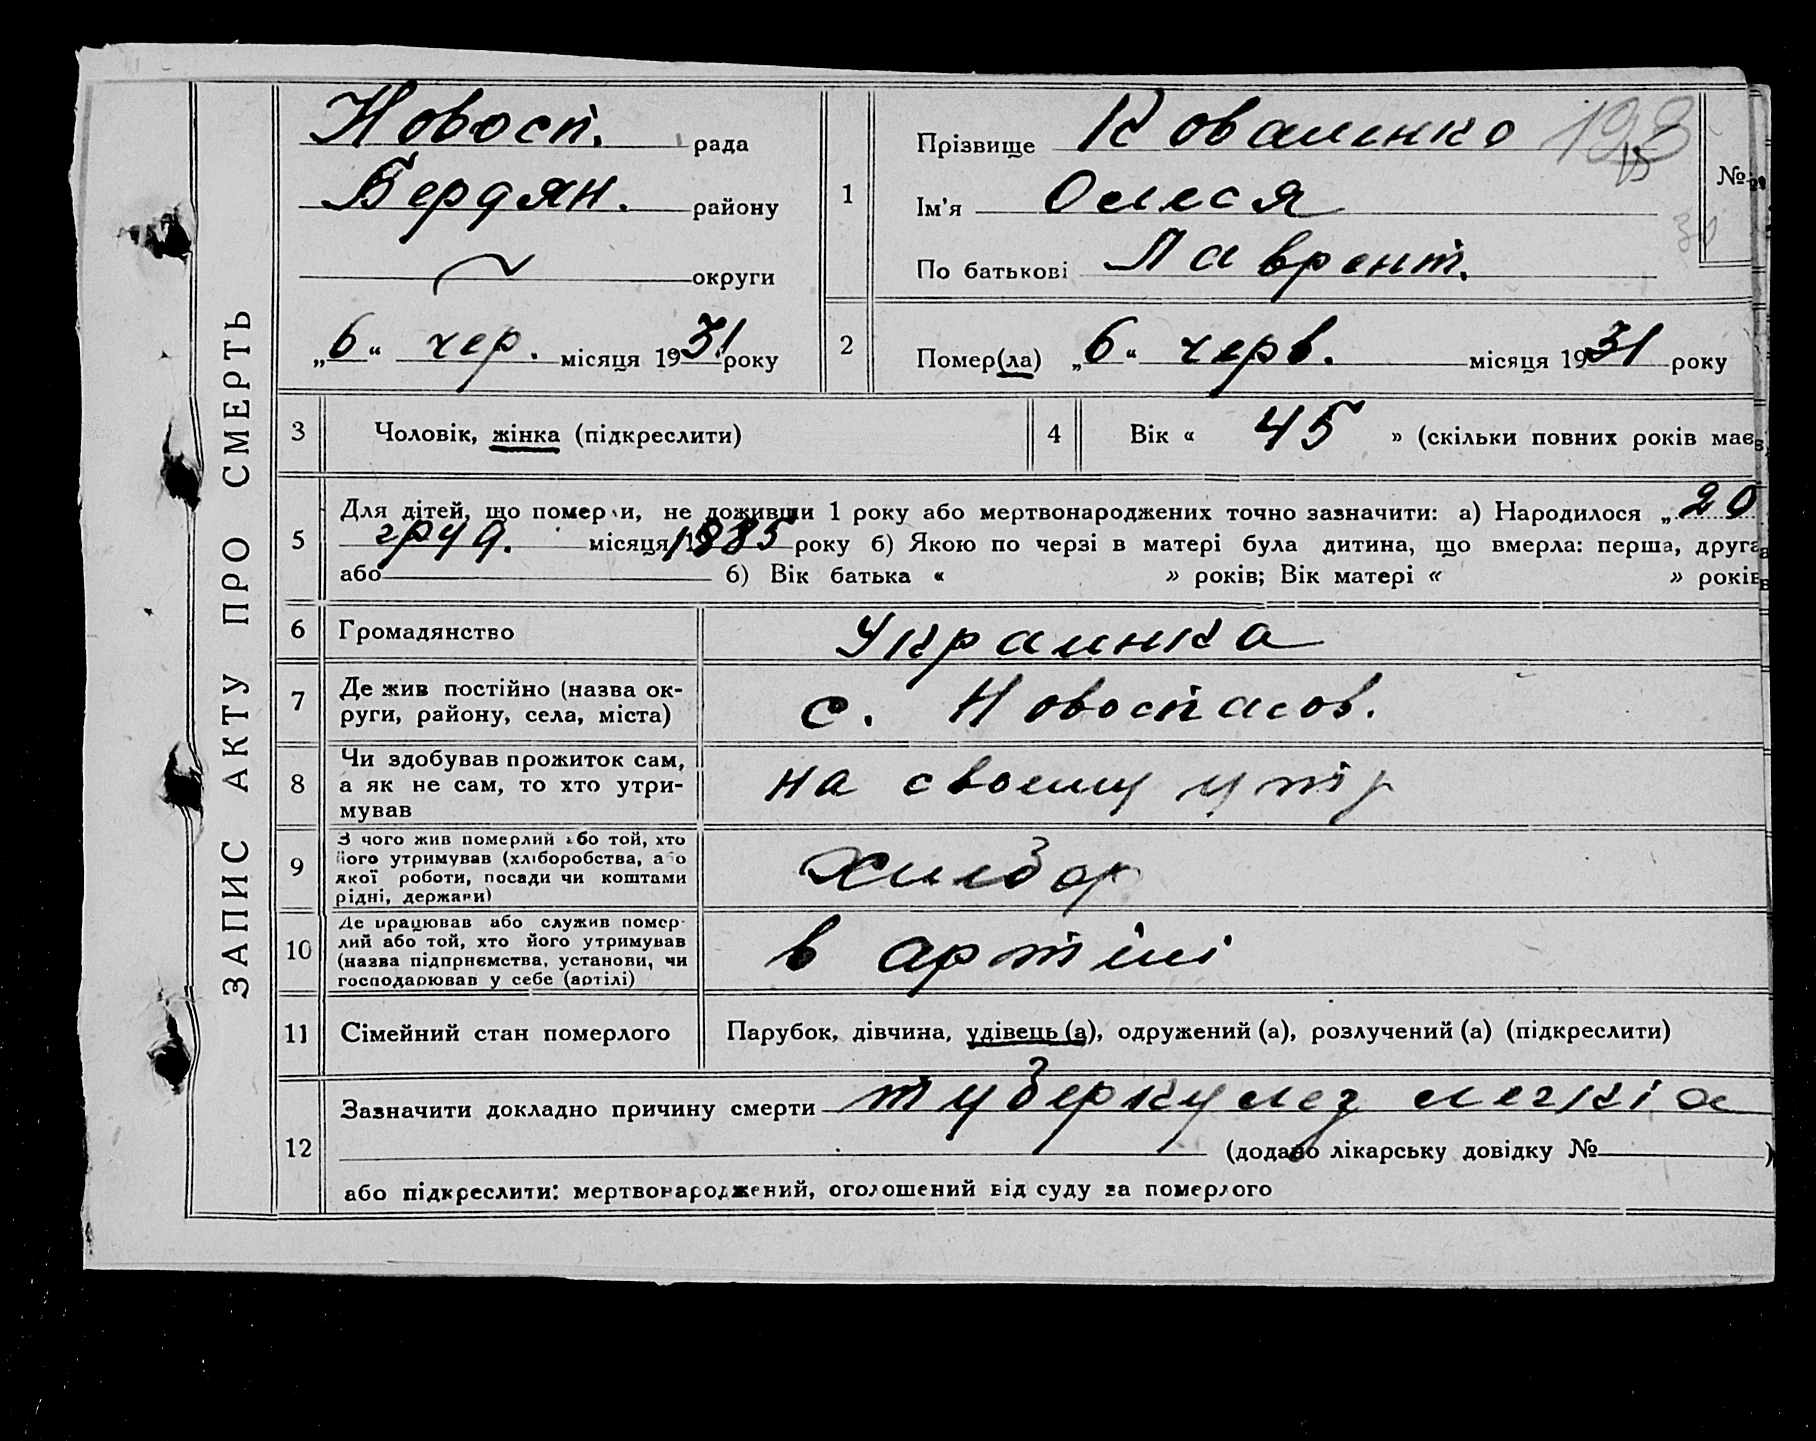 ЗАПИС АКТУ ПРО СМЕРТЬ
Новосп. рада
Бердян. району
округи
„6“ чер. місяця 1931 року
1
Прізвище Коваленко 198
Ім'я Олеся
По батькові Лаврент.
№
2
Помер(ла) „6“ черв. місяця 1931 року
3 Чоловік, жінка (підкреслити)
4 Вік « 45 » (скільки повних років має
5 Для дітей, що померли, не доживши 1 року або мертвонароджених точно зазначити: а) Народилося „20
груд. місяця 1885 року б) Якою по черзі в матері була дитина, що вмерла: перша, друга
або б) Вік батька « » років; Вік матері « » років
6 Громадянство Украинка
7 Де жив постійно (назва ок-
руги, району, села, міста) с. Новоспасов.
8 Чи здобував прожиток сам,
а як не сам, то хто утри-
мував на своему утр
9 З чого жив померлий або той, хто
його утримував (хліборобства, або
якої роботи, посади чи коштами
рідні, держави) хлебор
10 Де працював або служив помер-
лий або той, хто його утримував
(назва підприємства, установи, чи
господарював у себе (артілі) в артілі
11 Сімейний стан померлого Парубок, дівчина, удівець (а), одружений (а), розлучений (а) (підкреслити)
12 Зазначити докладно причину смерти туберкулез легкіа
(додано лікарську довідку № )
або підкреслити: мертвонароджений, оголошений від суду за померлого